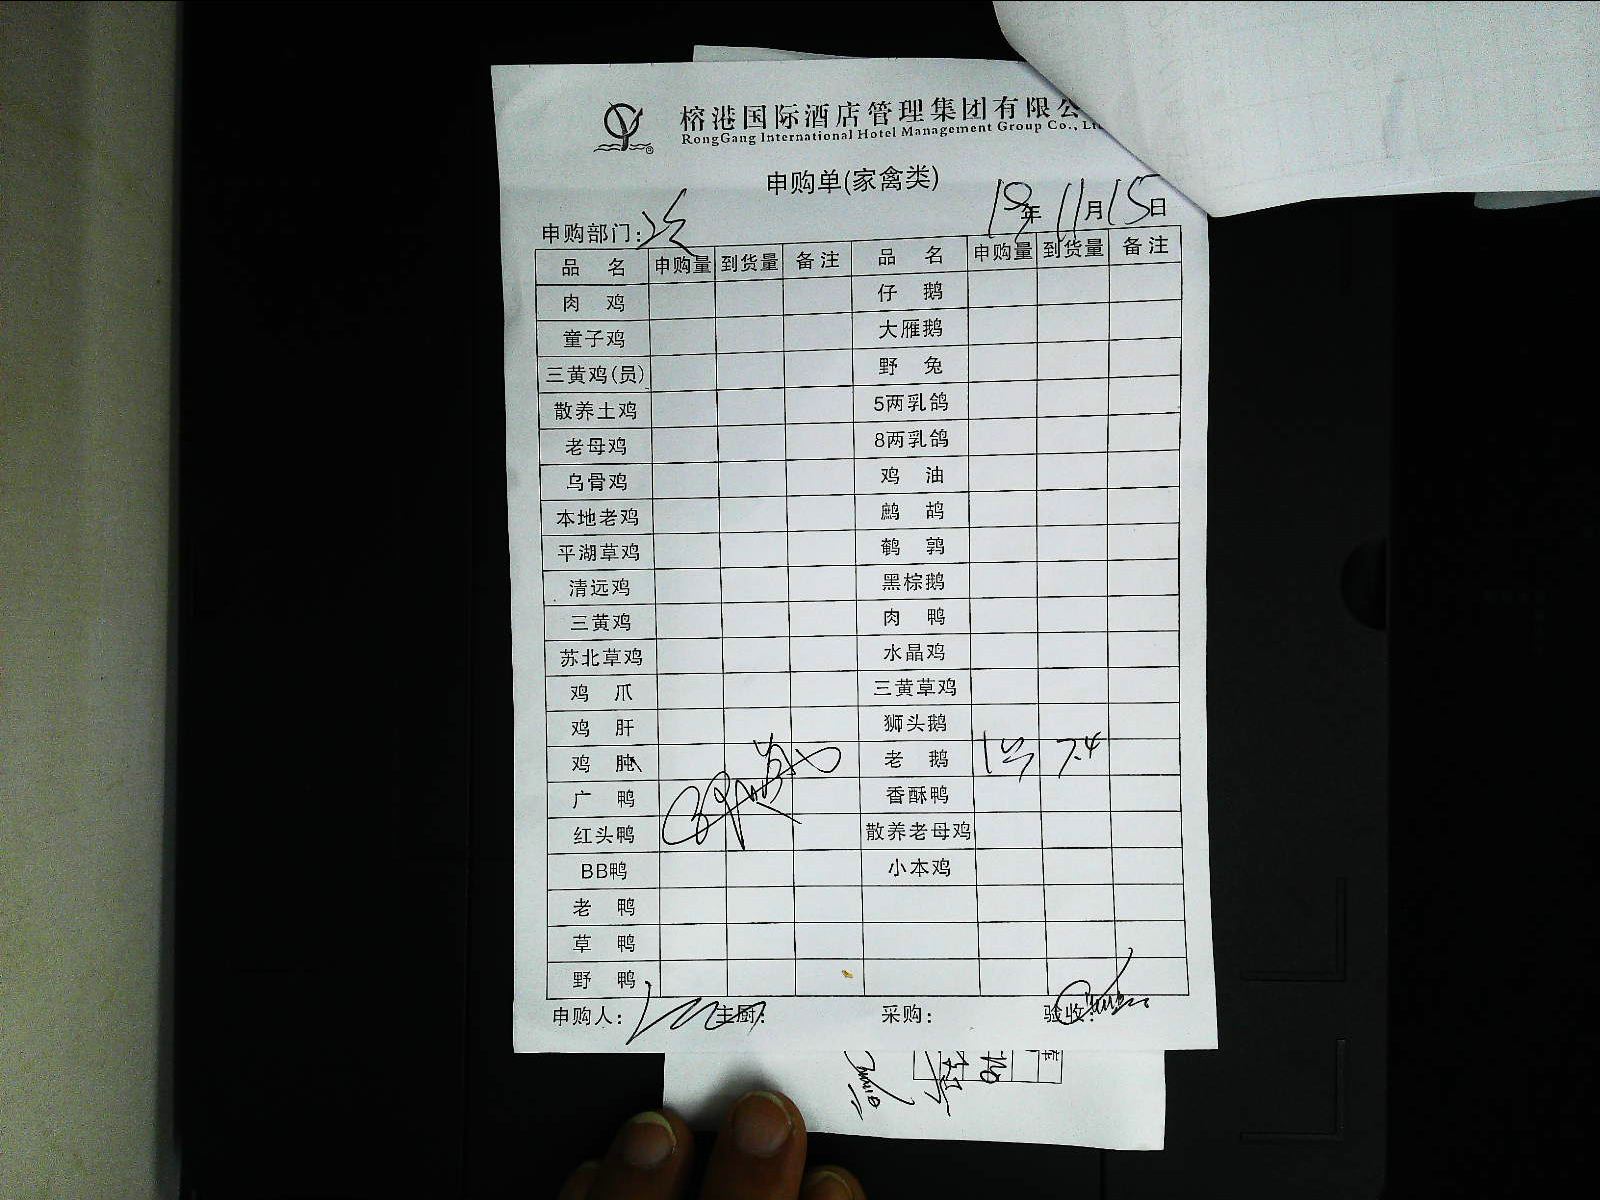 榕港国际酒店管理集团有限公
RongGang International Hotel Management Group Co.,
申购单(家禽类)
申购部门: 年11月15日
品名 申购量 到货量 备注 品名 申购量 到货量 备注
肉鸡 仔鹅
童子鸡 大雁鹅
三黄鸡(员) 野兔
散养土鸡 5两乳鸽
老母鸡 8两乳鸽
乌骨鸡 鸡油
本地老鸡 鹧鸪
平湖草鸡 鹌鹑
清远鸡 黑棕鹅
三黄鸡 肉鸭
苏北草鸡 水晶鸡
鸡爪 三黄草鸡
鸡肝 狮头鹅
鸡肫 老鹅 7.4
广鸭 香酥鸭
红头鸭 散养老母鸡
BB鸭 小本鸡
老鸭
草鸭
野鸭
申购人: 主厨: 采购: 验收: